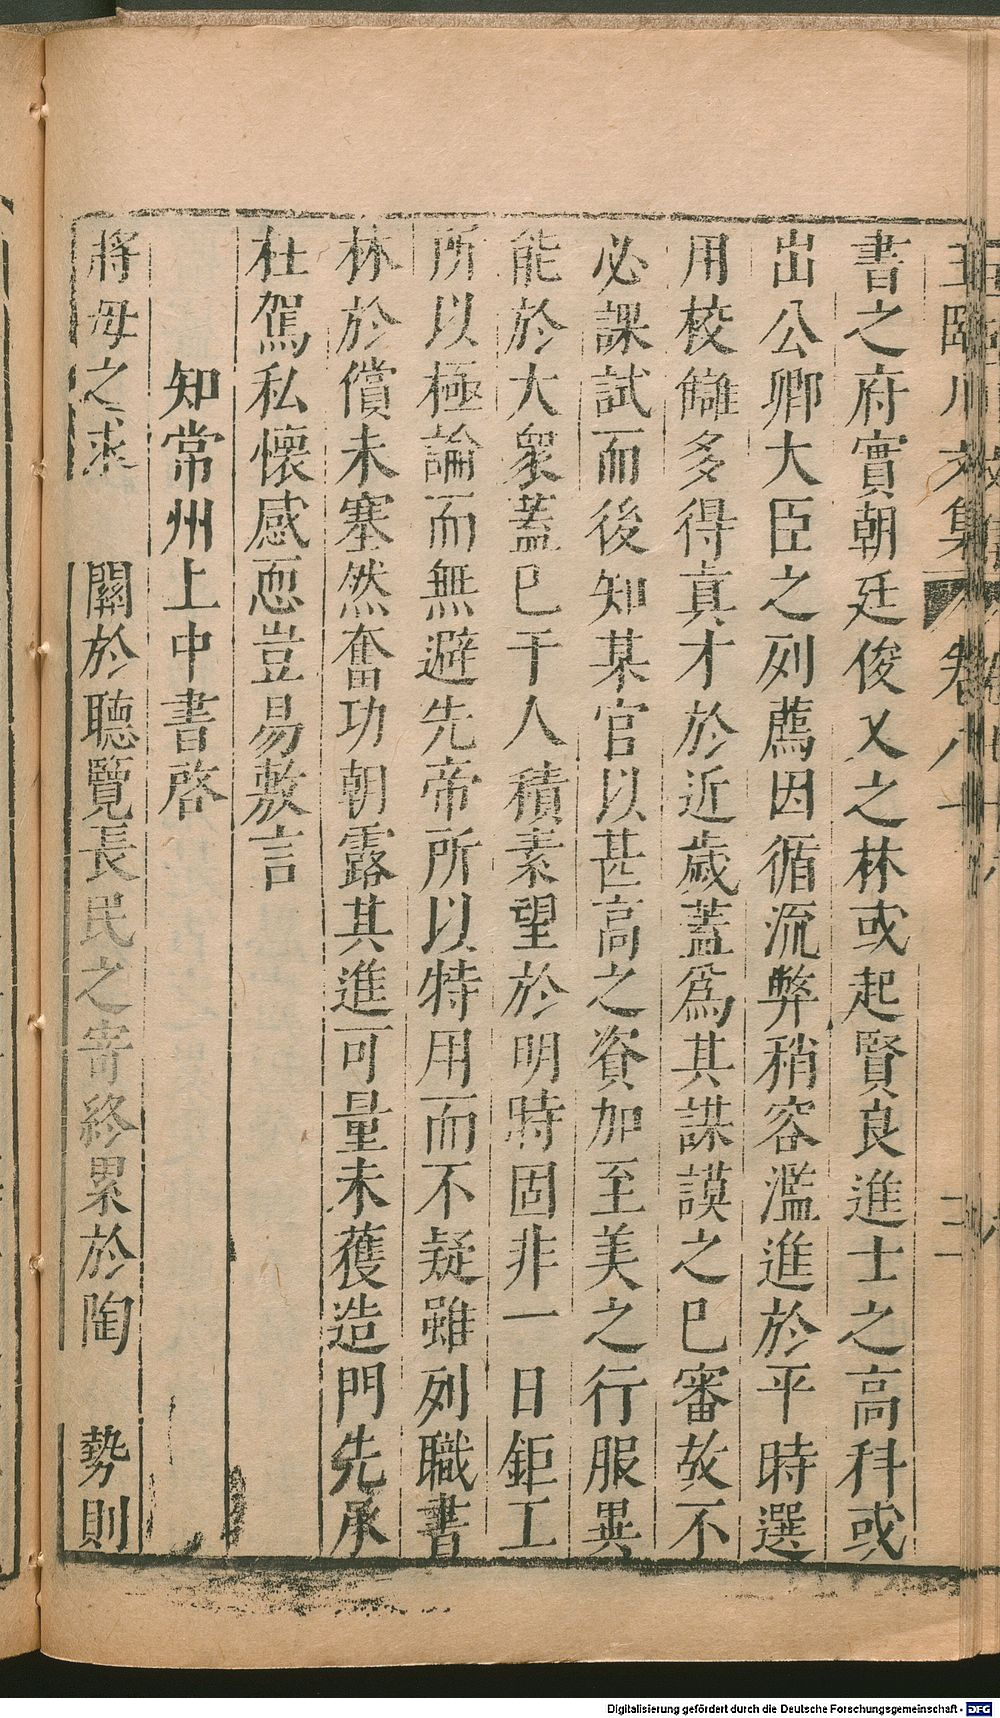 王臨川文集 卷八十 二
書之府實朝廷俊乂之林或起賢良進士之高科或
出公卿大臣之列薦因循流弊稍容濫進於平時選
用校讎多得真才於近歲蓋爲其謀謨之已審故不
必課試而後知某官以甚高之資加至美之行服異
能於大衆蓋已千人積素望於明時固非一日鉅工
所以極論而無避先帝所以特用而不疑雖列職書
林於償未塞然奮功朝露其進可量未獲造門先承
枉駕私懷感恧豈易敷言
知常州上中書啓
將母之求 關於聽覽長民之寄終累於陶 勢則
Digitalisierung gefördert durch die Deutsche Forschungsgemeinschaft - DFG